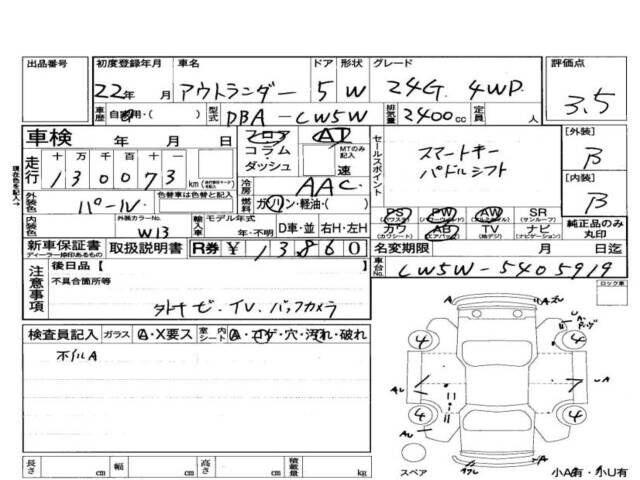 出品番号 初度登録年月 車名 ドア 形状 グレード 評価点
22年 月 アウトランダー 5 W 24G 4WD 3.5
車歴 自家用・( ) 型式 DBA-CW5W 排気量 2400cc 定員 人
車検 年 月 日 フロア コラム・ダッシュ AT MTのみ記入 速
現在色を記入→
走行 十万千百十一 130073 km
冷房 AAC
セールスポイント スマートキー
パドルシフト
[外装] B
[内装] B
外装色 パール 色替車は色替と記入 燃料 ガソリン・軽油・( )
内装色 外装カラーNo. W13 輸入車 モデル年式 年・不明 D車・並 右H・左H
PS (パワステ) PW (パワーウィンド) AW (アルミホイル) SR (サンルーフ)
カワ (カワシート) AB (エアバッグ) TV (地デジ) ナビ (ナビゲーション)
純正品のみ丸印
新車保証書 ディーラー捺印あるもの 取扱説明書 R券 ¥ 13860
名変期限 月 日迄
車台No. CW5W-5405919
注意事項 後日品【
不具合箇所等
外ナビ・TV・バックカメラ
ロック車
検査員記入 ガラス A・X要ス 室内シート A・コゲ・穴・汚れ・破れ
A
4 4
4 4
スペア
小A有・小U有
長さ cm 幅 cm 高さ cm 積載量 kg